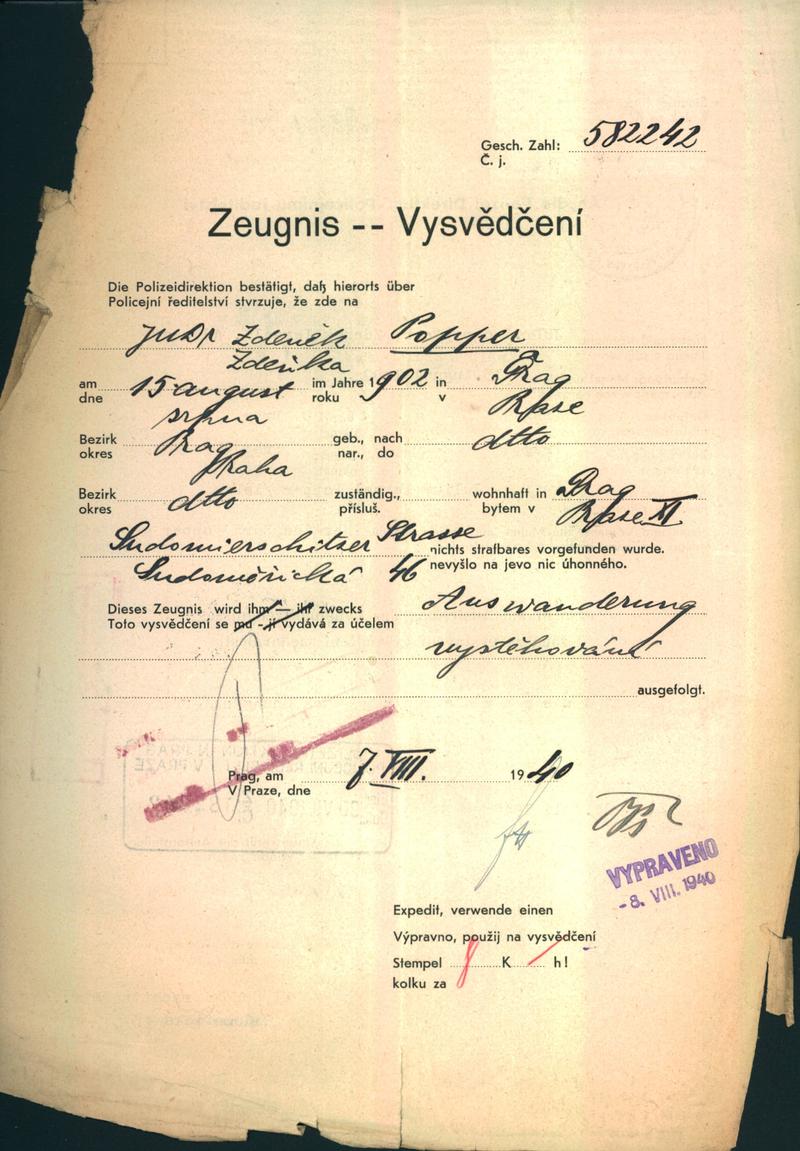 Gesch. Zahl: 582242
Č. j.
Zeugnis -- Vysvědčení
Die Polizeidirektion bestätigt, daß hierorts über
Policejní ředitelství stvrzuje, že zde na
JUDr Zdeněk Popper
Zdeňka
am 15 august im Jahre 1902 in Prag
dne srpna roku v Praze
Bezirk Prag geb., nach dtto
okres Praha nar., do
Bezirk dtto zuständig., wohnhaft in Prag
okres přísluš. bytem v Praze XI
Sudomierschitzer Strasse nichts strafbares vorgefunden wurde.
Sudoměřická 46 nevyšlo na jevo nic úhonného.
Dieses Zeugnis wird ihm — ihr zwecks Auswanderung
Toto vysvědčení se mu - jí vydává za účelem
vystěhování
ausgefolgt.
Prag, am 7. VIII. 1940
V Praze, dne
VYPRAVENO
- 8. VIII. 1940
Expedit, verwende einen
Výpravno, použij na vysvědčení
Stempel 8 K — h!
kolku za